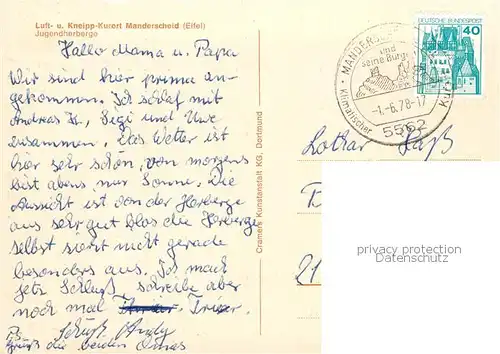 Luft- u. Kneipp-Kurort Manderscheid (Eifel)
Jugendherberge
Hallo Mama u. Papa
Wir sind hier prima an-
gekommen. Ich schlaf mit
Andreas K., Sigi und Uwe
zusammen. Das Wetter ist
hier sehr schön, von morgens
bist abens nur Sonne. Die
Aussicht ist von der Herberge
aus sehr gut blos die Herberge
selbst sieht nicht gerade
besonders aus. Ich mach
jetz Schluß, schreibe aber
noch mal Trier.
Gruß Andy
PS.
Gruß die beiden Omas
Cramers Kunstanstalt KG, Dortmund
MANDERS
und
seine Burg
-1.-6.78-17
Klimatischer
Kur
5562
DEUTSCHE BUNDESPOST
40
Lothar
21
privacy protection
Datenschutz